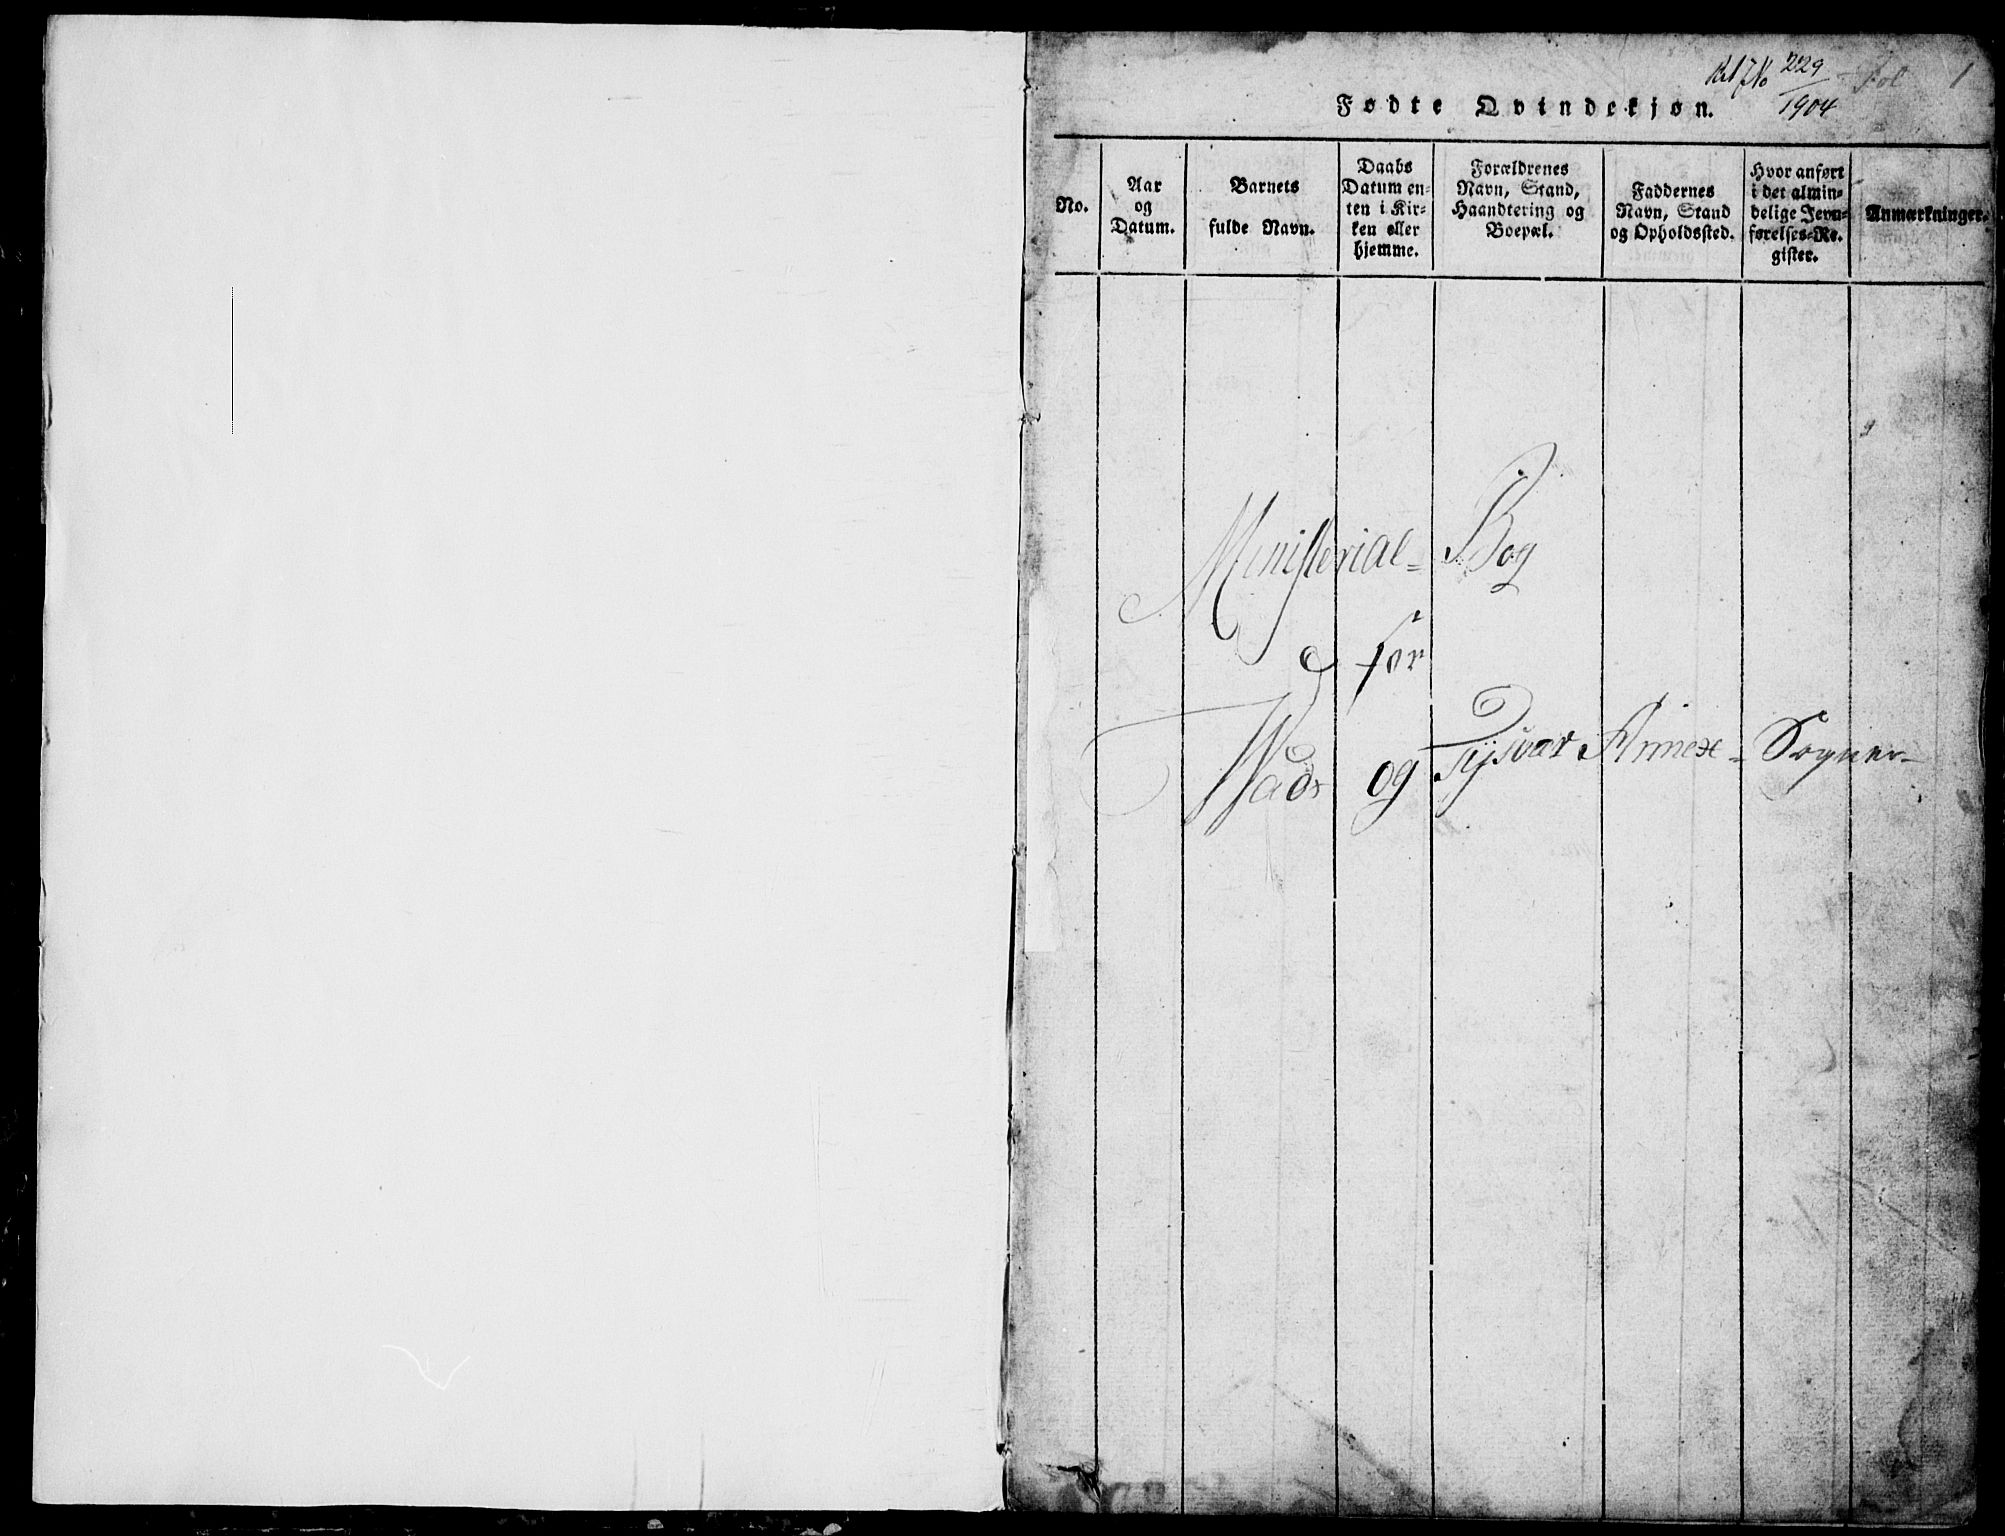 No 229
1904
Fol 1
Fødte Qvindekjøn.
No.
Aar
og
Datum.
Barnets
fulde Navn.
Daabs
Datum en-
ten i Kir-
ken eller
hjemme.
Forældrenes
Navn, Stand,
Haandtering og
Boepæl.
Faddernes
Navn, Stand
og Opholdssted.
Hvor anført
i det almin-
delige Jevn-
førelses-Re-
gister.
Anmærkninger.
Ministerial- Bog
for
Wads og Tysvær Annex- Sogner